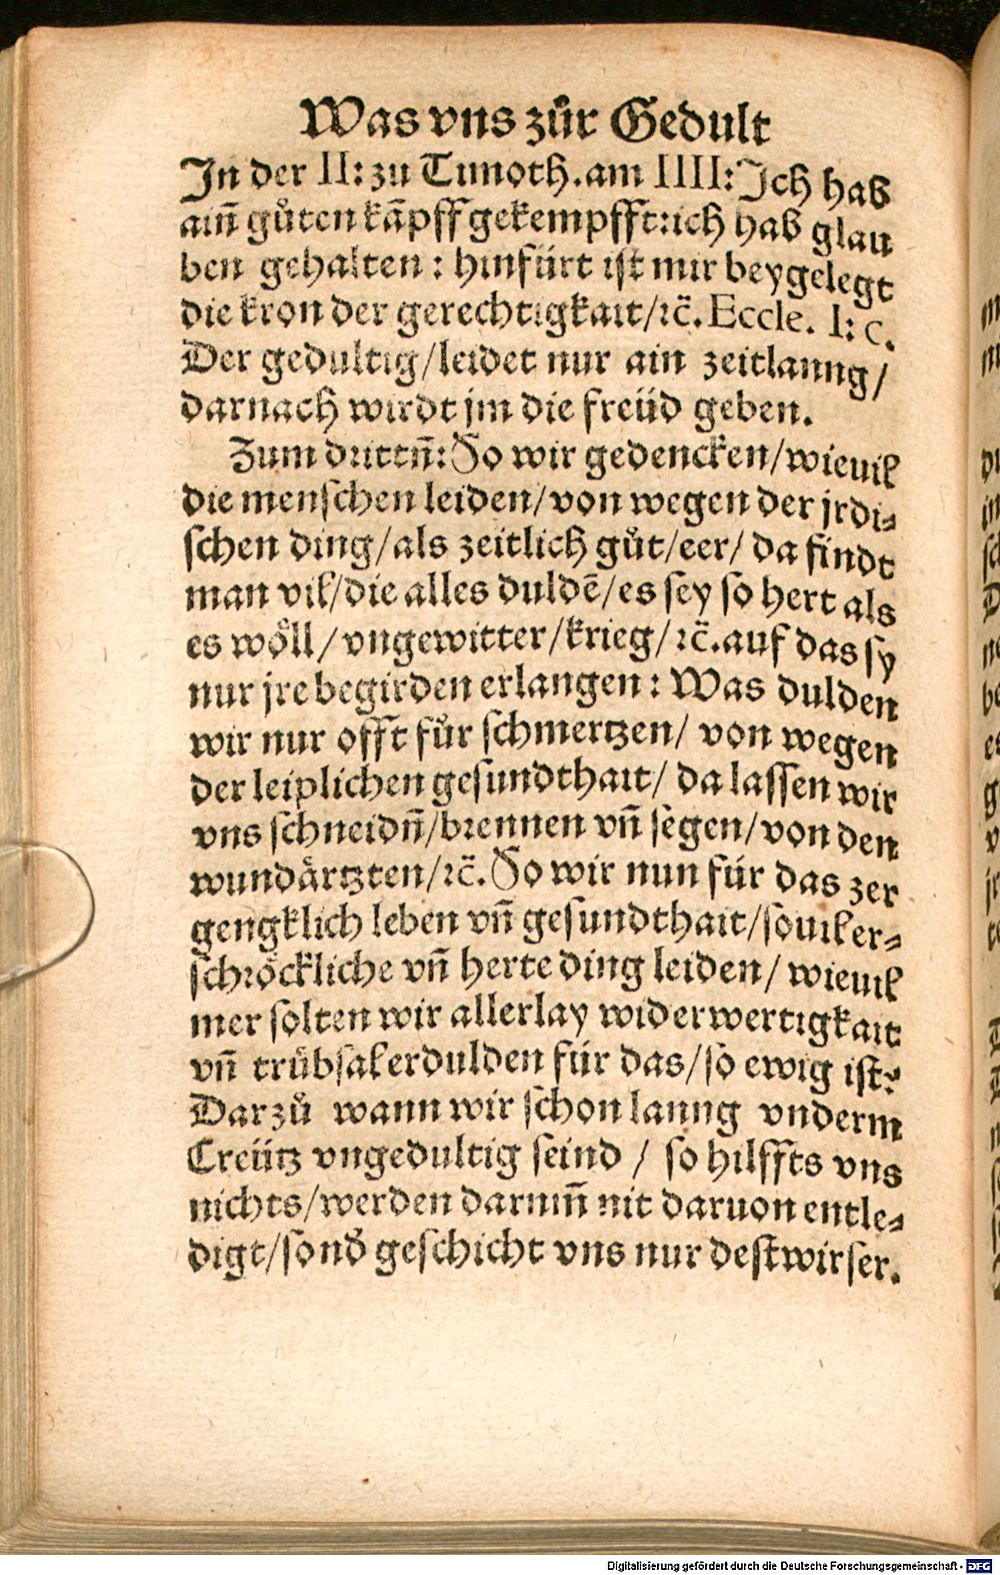 Was vns zůr Gedult
In der II: zu Timoth. am IIII: Ich hab
ainñ gůten kãpff gekempfft: ich hab glau
ben gehalten : hinfürt ist mir beygelegt
die kron der gerechtigkait/ ꝛc̃. Eccle. I: c.
Der gedultig/ leidet nur ain zeitlanng/
darnach wirdt jm die freüd geben.
Zum drittñ: So wir gedencken/ wieuil
die menschen leiden/ von wegen der jrdi⸗
schen ding/ als zeitlich gůt/ eer/ da findt
man vil/ die alles duldẽ/ es sey so hert als
es wöll/ vngewitter/ krieg/ ꝛc̃. auf das sy
nur jre begirden erlangen : Was dulden
wir nur offt für schmertzen/ von wegen
der leiplichen gesundthait/ da lassen wir
vns schneidñ/ brennen vñ segen/ von den
wundärtzten/ ꝛc̃. So wir nun für das zer
gengklich leben vñ gesundthait/ souil er⸗
schröckliche vñ herte ding leiden/ wieuil
mer solten wir allerlay widerwertigkait
vñ trübsal erdulden für das/ so ewig ist?
Darzů wann wir schon lanng vnderm
Creütz vngedultig seind / so hilffts vns
nichts/ werden darumñ nit daruon entle⸗
digt/ sond̕ geschicht vns nur destwirser.
Digitalisierung gefördert durch die Deutsche Forschungsgemeinschaft - DFG